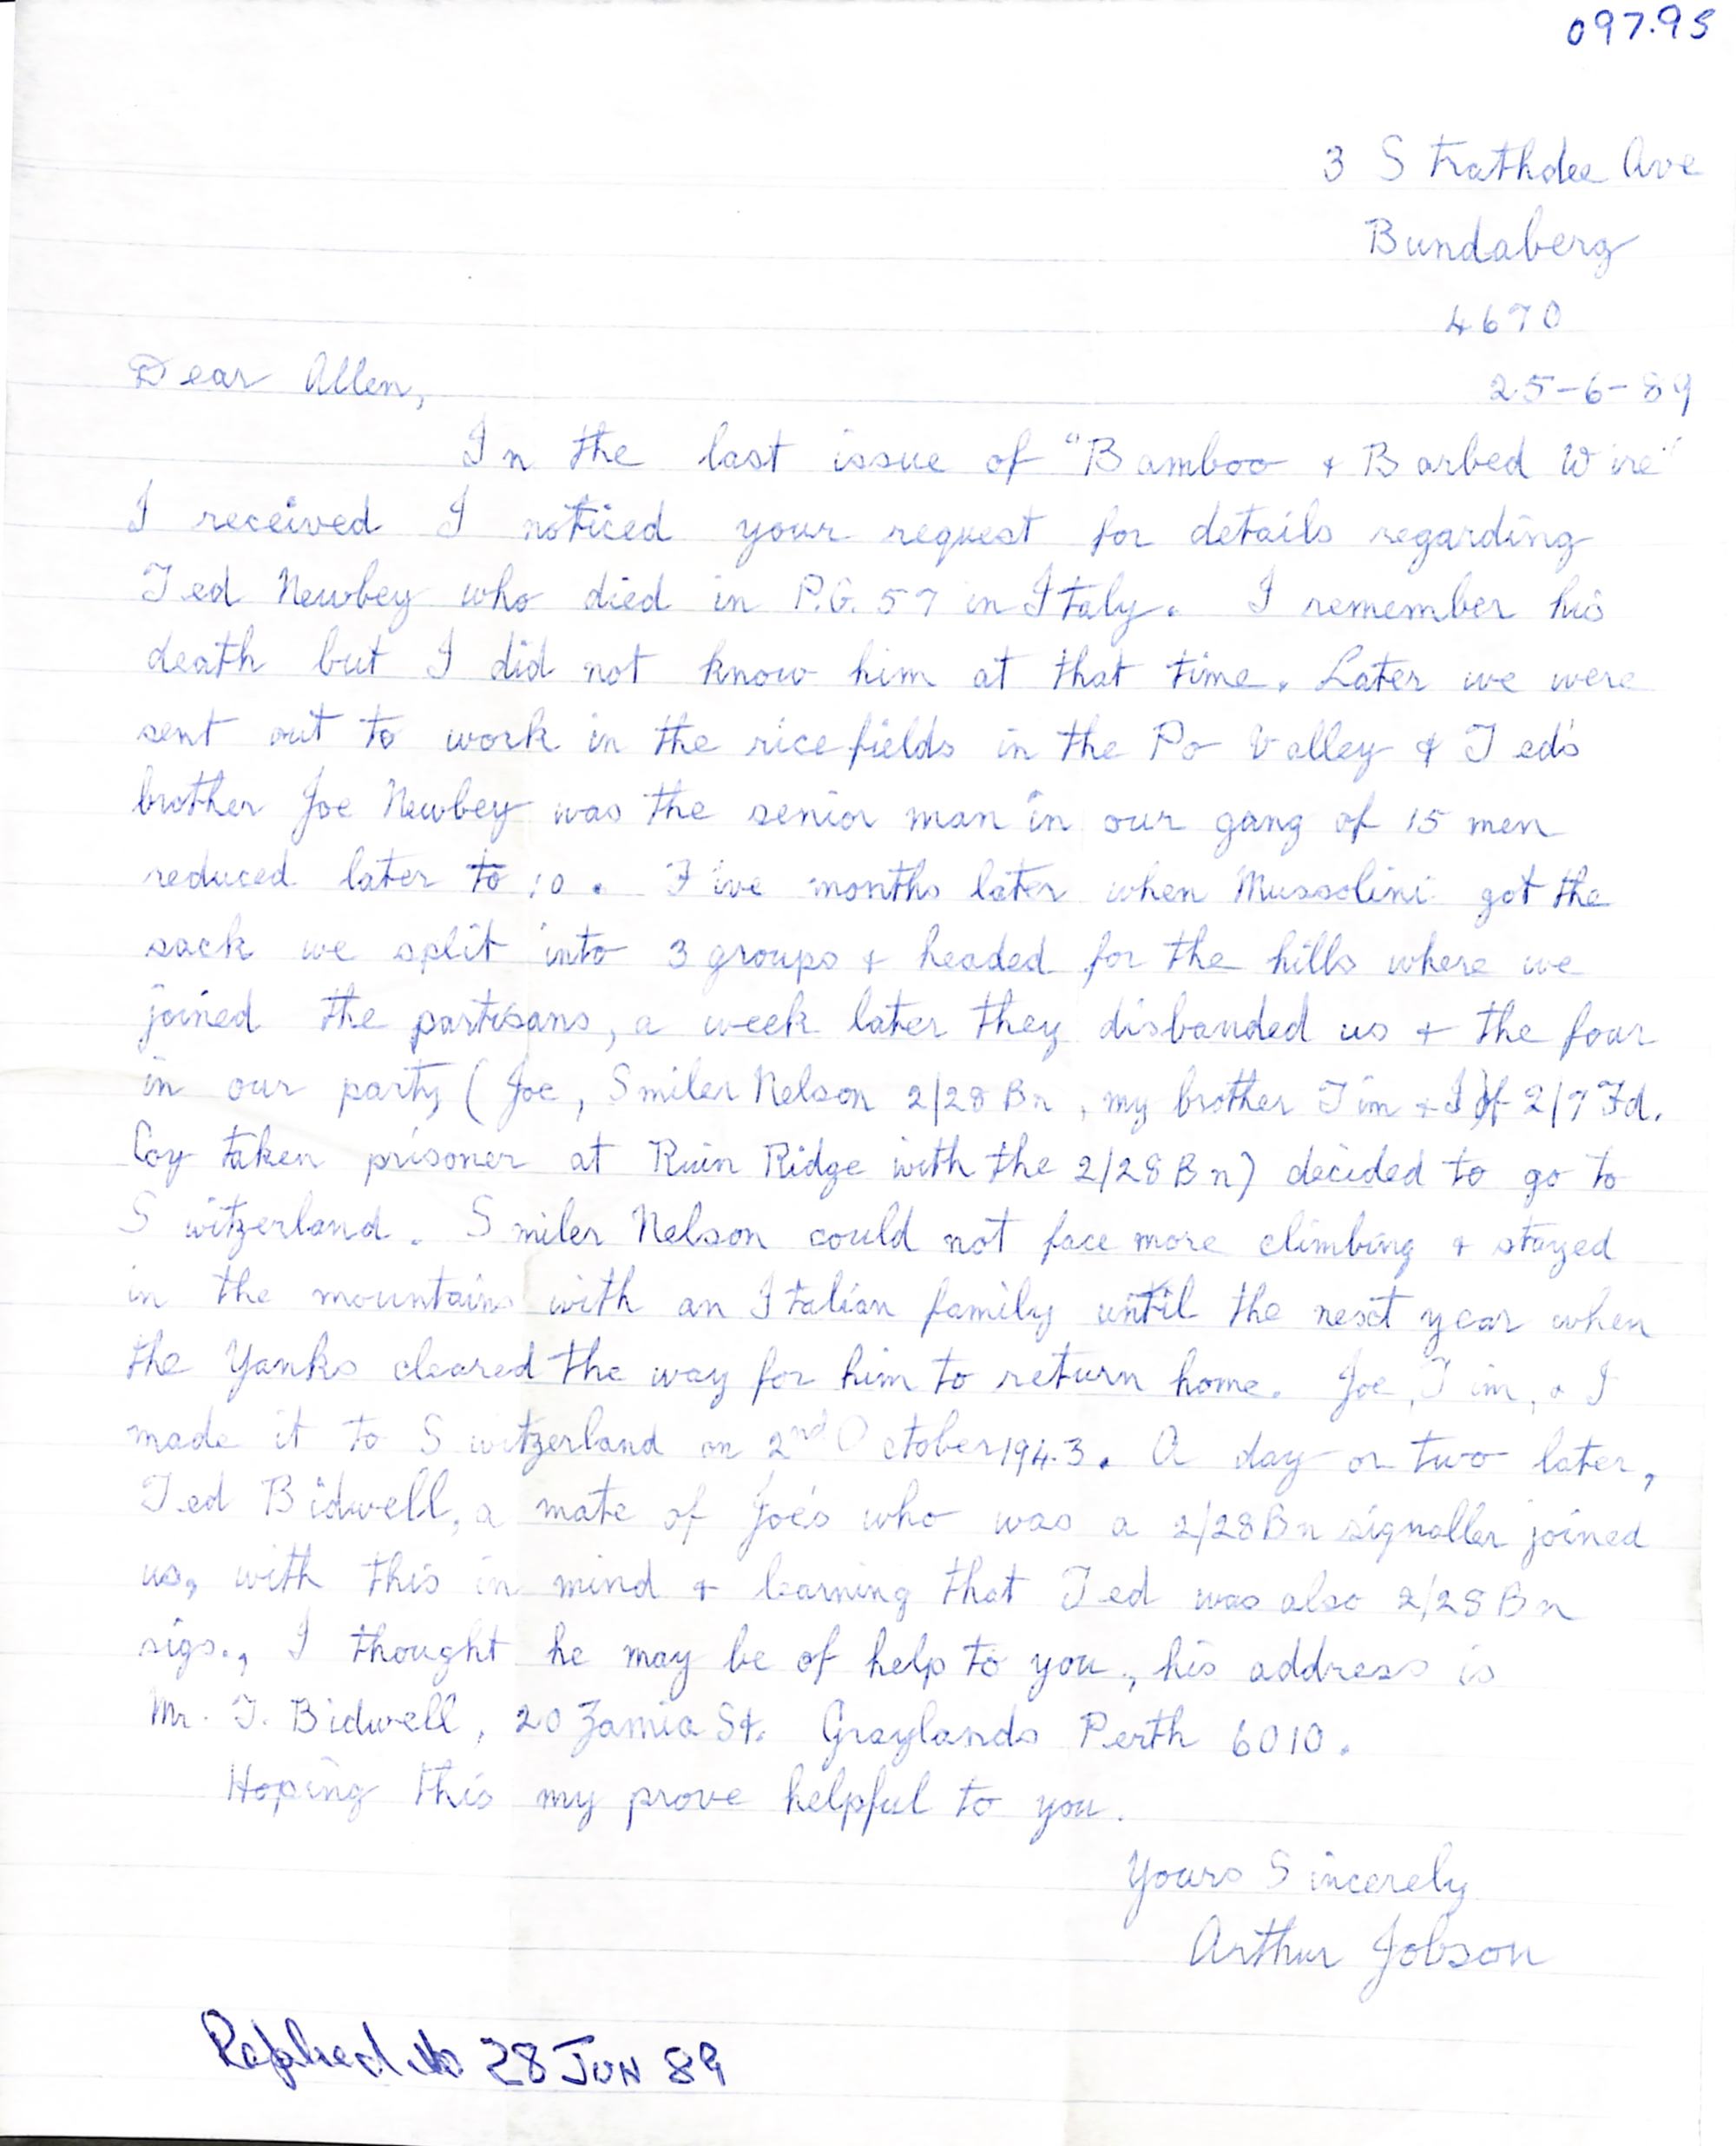 097.95
3 Strathdee Ave
Bundaberg
4670
Dear Allen,
25-6-89
In the last issue of "Bamboo + Barbed Wire"
I received I noticed your request for details regarding
Ted Newbey who died in P.G. 57 in Italy. I remember his
death but I did not know him at that time. Later we were
sent out to work in the rice fields in the Po Valley & Ted's
brother Joe Newbey was the senior man in our gang of 15 men
reduced later to 10. Five months later when Mussolini got the
sack we split into 3 groups + headed for the hills where we
joined the partisans, a week later they disbanded us + the four
in our party (Joe, Smiler Nelson 2/28 Bn, my brother Tim + I of 2/7 Fd.
Coy taken prisoner at Ruin Ridge with the 2/28 Bn) decided to go to
Switzerland. Smiler Nelson could not face more climbing + stayed
in the mountains with an Italian family until the next year when
the Yanks cleared the way for him to return home. Joe, Tim, & I
made it to Switzerland on 2nd October 1943. A day or two later,
Ted Bidwell, a mate of Joe's who was a 2/28 Bn signaller joined
us, with this in mind + learning that Ted was also 2/28 Bn
sigs., I thought he may be of help to you, his address is
Mr. T. Bidwell, 20 Zamia St. Graylands Perth 6010.
Hoping this my prove helpful to you.
Yours Sincerely
Arthur Jobson
Replied 28 JUN 89